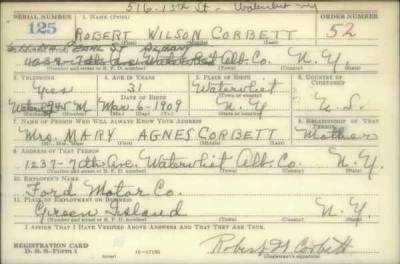 516-15th St- Watervliet NY
SERIAL NUMBER 1. NAME (Print) ORDER NUMBER
125 ROBERT WILSON CORBETT 52
(First) (Middle) (Last)
Pearl St Albany
7th Ave Watervliet Alb. Co. N.Y.
(Number and street or R. F. D. number) (Town) (County) (State)
3. TELEPHONE 4. AGE IN YEARS 5. PLACE OF BIRTH 6. COUNTRY OF CITIZENSHIP
Yes 31 Watervliet
DATE OF BIRTH (Town or county)
945 M Mar. 6-1909 N.Y. U.S.
7. NAME OF PERSON WHO WILL ALWAYS KNOW YOUR ADDRESS 8. RELATIONSHIP OF THAT PERSON
Mrs. MARY AGNES CORBETT Mother
(Mr., Mrs., Miss) (First) (Middle) (Last)
9. ADDRESS OF THAT PERSON
1237-7th Ave, Watervliet Alb. Co. N.Y.
(Number and street or R. F. D. number) (Town) (County) (State)
10. EMPLOYER'S NAME
Ford Motor Co.
11. PLACE OF EMPLOYMENT OR BUSINESS
Green Island N.Y.
(Number and street or R. F. D. number) (Town) (County) (State)
I AFFIRM THAT I HAVE VERIFIED ABOVE ANSWERS AND THAT THEY ARE TRUE.
REGISTRATION CARD
D. S. S. Form 1 Robert W Corbett
(Registrant's signature)